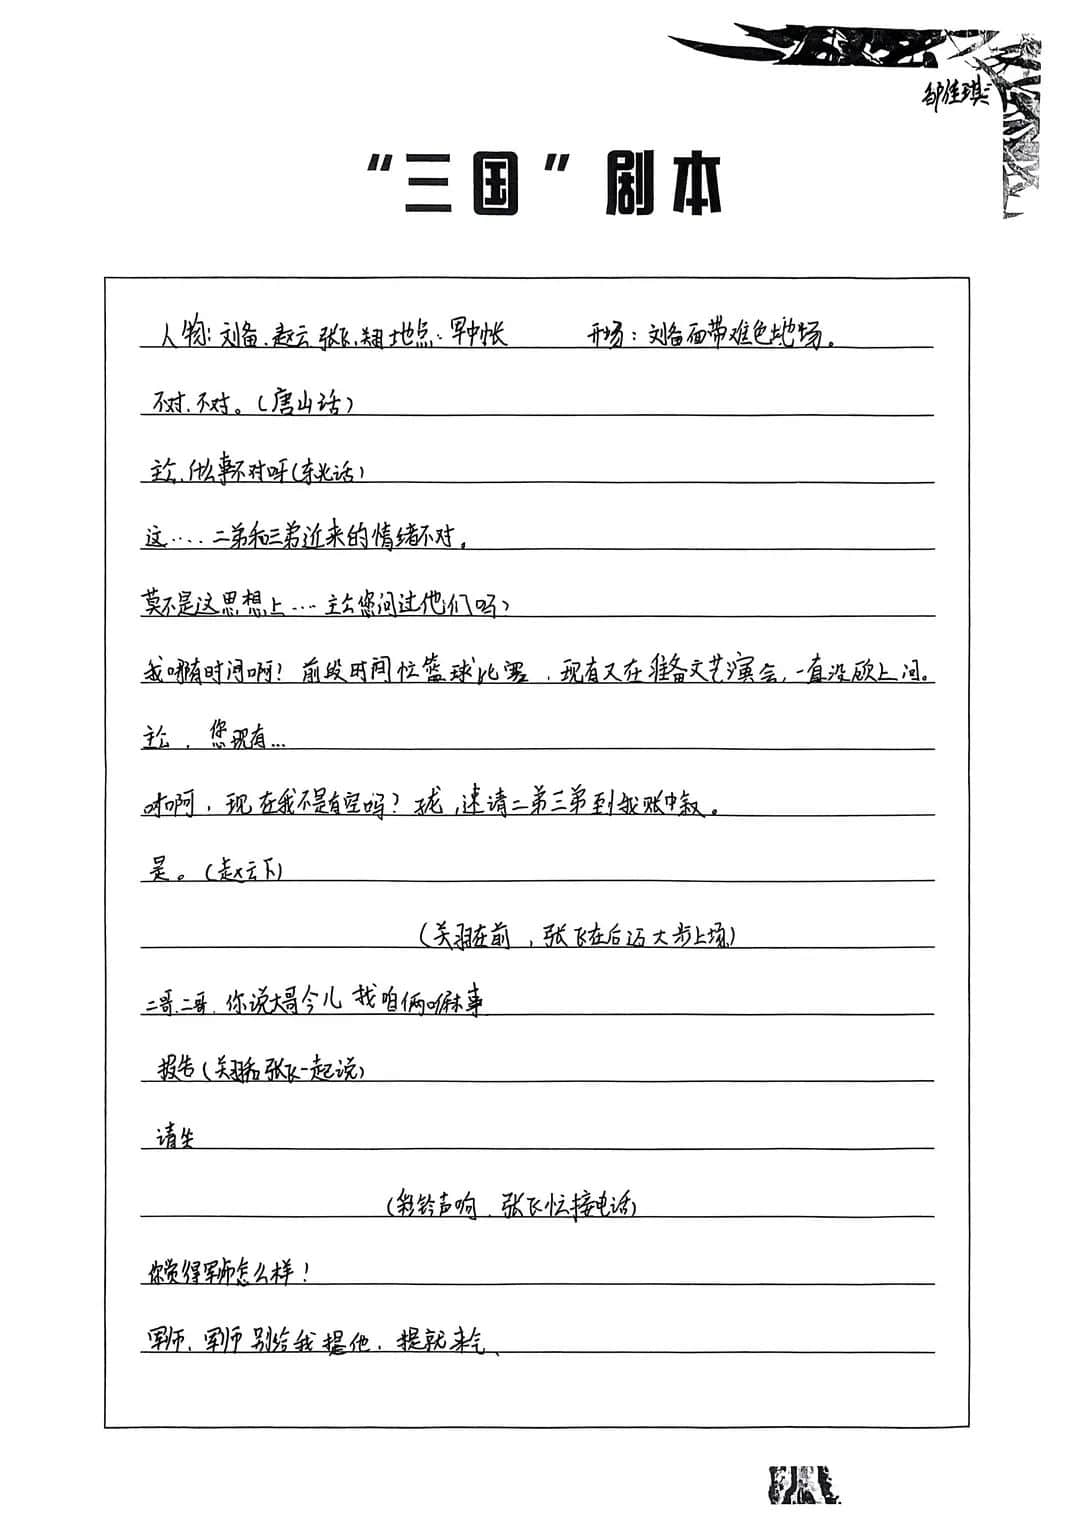 邹佳琪
“三国”剧本
人物：刘备、赵云、张飞、关羽 地点：军中帐 开场：刘备面带难色地上场。
不对、不对。（唐山话）
主公、什么事不对呀（东北话）
这.... 二弟和三弟近来的情绪不对。
莫不是这思想上... 主公您问过他们吗？
我哪有时间啊！前段时间忙篮球比赛，现有又在准备文艺演会，一直没顾上问。
主公，您现有...
啊，现在我不是有空吗？，速请二弟三弟到我账中叙。
是。（赵云下）
（关羽在前，张飞在后迈大步上场）
二哥、二哥、你说大哥今儿找咱俩嘛事
报告（关羽和张飞一起说）
请坐
（彩铃声响、张飞忙接电话）
你觉得军师怎么样！
军师、军师别给我提他、提就来气、